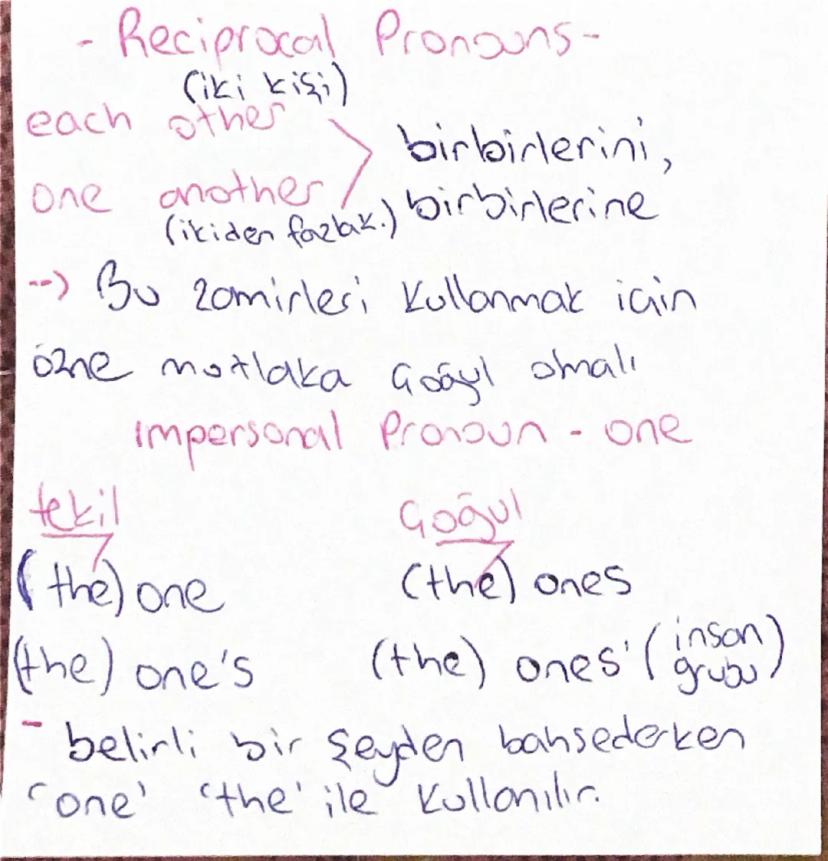 - Reciprocal Pronouns -
(iki kişi)
each other
birbirlerini,
one another
birbirlerine
(ikiden fazla k.)
--> Bu zamirleri kullanmak için
özne mutlaka çoğul olmalı
Impersonal Pronoun - one
tekil çoğul
(the) one (the) ones
(the) one's (the) ones' (insan grubu)
- belirli bir şeyden bahsederken
'one' 'the' ile kullanılır.